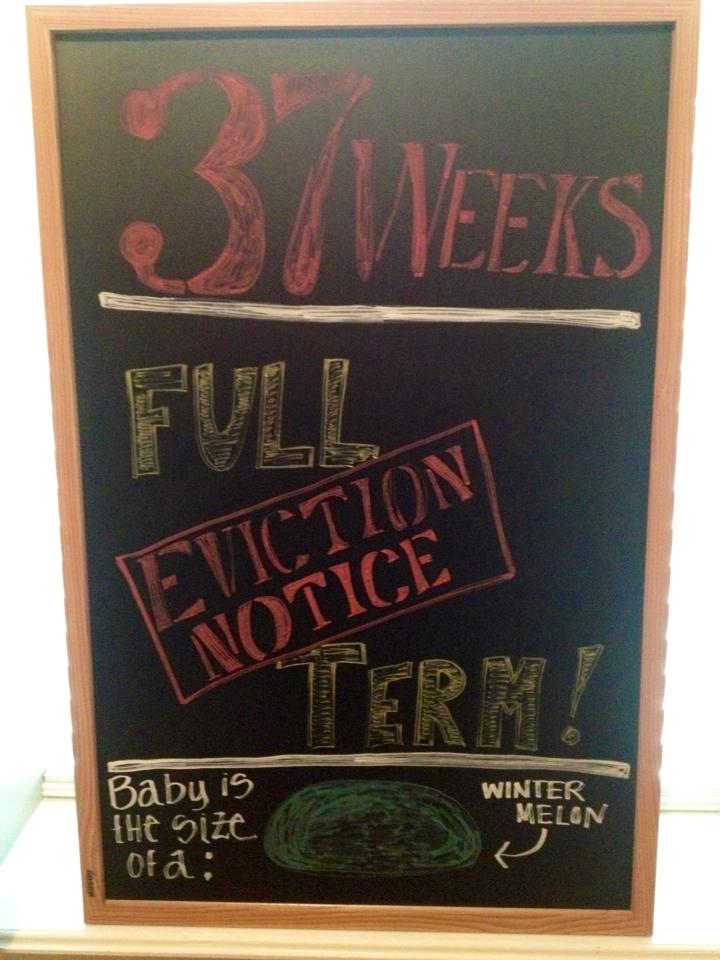 37 WEEKS
FULL
EVICTION
NOTICE
TERM!
Baby is
the size
of a:
WINTER
MELON